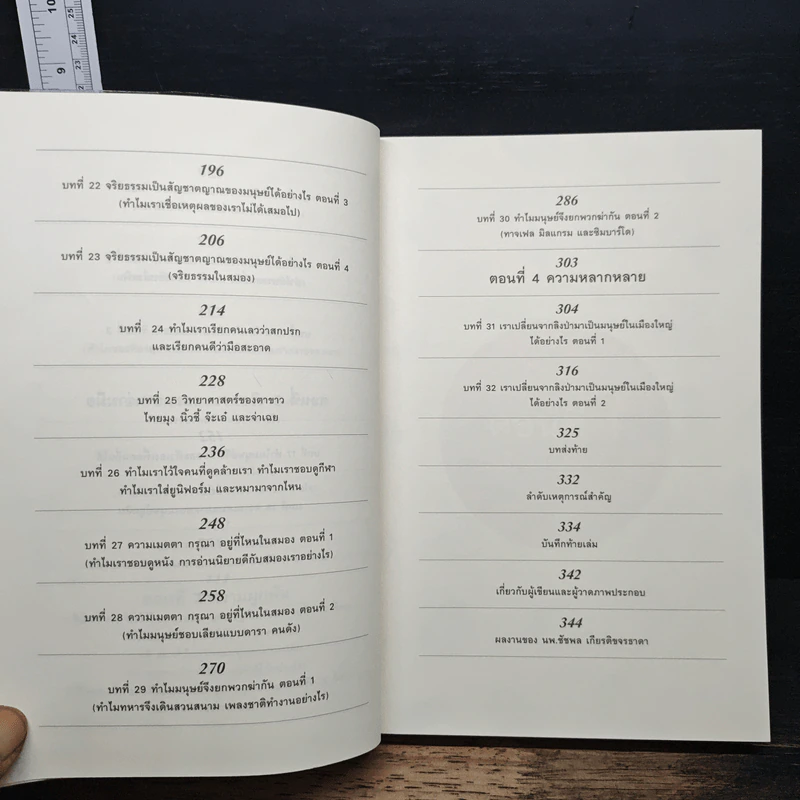 10
25
24
9
23
196
บทที่ 22 จริยธรรมเป็นสัญชาตญาณของมนุษย์ได้อย่างไร ตอนที่ 3
(ทำไมเราเชื่อเหตุผลของเราไม่ได้เสมอไป)
206
บทที่ 23 จริยธรรมเป็นสัญชาตญาณของมนุษย์ได้อย่างไร ตอนที่ 4
(จริยธรรมในสมอง)
214
บทที่ 24 ทำไมเราเรียกคนเลวว่าสกปรก
และเรียกคนดีว่ามือสะอาด
228
บทที่ 25 วิทยาศาสตร์ของตาขาว
ไทยมุง นิ้วชี้ จ๊ะเอ๋ และจ่าเฉย
236
บทที่ 26 ทำไมเราไว้ใจคนที่ดูคล้ายเรา ทำไมเราชอบดูกีฬา
ทำไมเราใส่ยูนิฟอร์ม และหมามาจากไหน
248
บทที่ 27 ความเมตตา กรุณา อยู่ที่ไหนในสมอง ตอนที่ 1
(ทำไมเราชอบดูหนัง การอ่านนิยายดีกับสมองเราอย่างไร)
258
บทที่ 28 ความเมตตา กรุณา อยู่ที่ไหนในสมอง ตอนที่ 2
(ทำไมมนุษย์ชอบเลียนแบบดารา คนดัง)
270
บทที่ 29 ทำไมมนุษย์จึงยกพวกฆ่ากัน ตอนที่ 1
(ทำไมทหารจึงเดินสวนสนาม เพลงชาติทำงานอย่างไร)
286
บทที่ 30 ทำไมมนุษย์จึงยกพวกฆ่ากัน ตอนที่ 2
(ทาจเฟล มิลแกรม และซิมบาร์โด)
303
ตอนที่ 4 ความหลากหลาย
304
บทที่ 31 เราเปลี่ยนจากลิงป่ามาเป็นมนุษย์ในเมืองใหญ่
ได้อย่างไร ตอนที่ 1
316
บทที่ 32 เราเปลี่ยนจากลิงป่ามาเป็นมนุษย์ในเมืองใหญ่
ได้อย่างไร ตอนที่ 2
325
บทส่งท้าย
332
ลำดับเหตุการณ์สำคัญ
334
บันทึกท้ายเล่ม
342
เกี่ยวกับผู้เขียนและผู้วาดภาพประกอบ
344
ผลงานของ นพ.ชัชพล เกียรติขจรธาดา